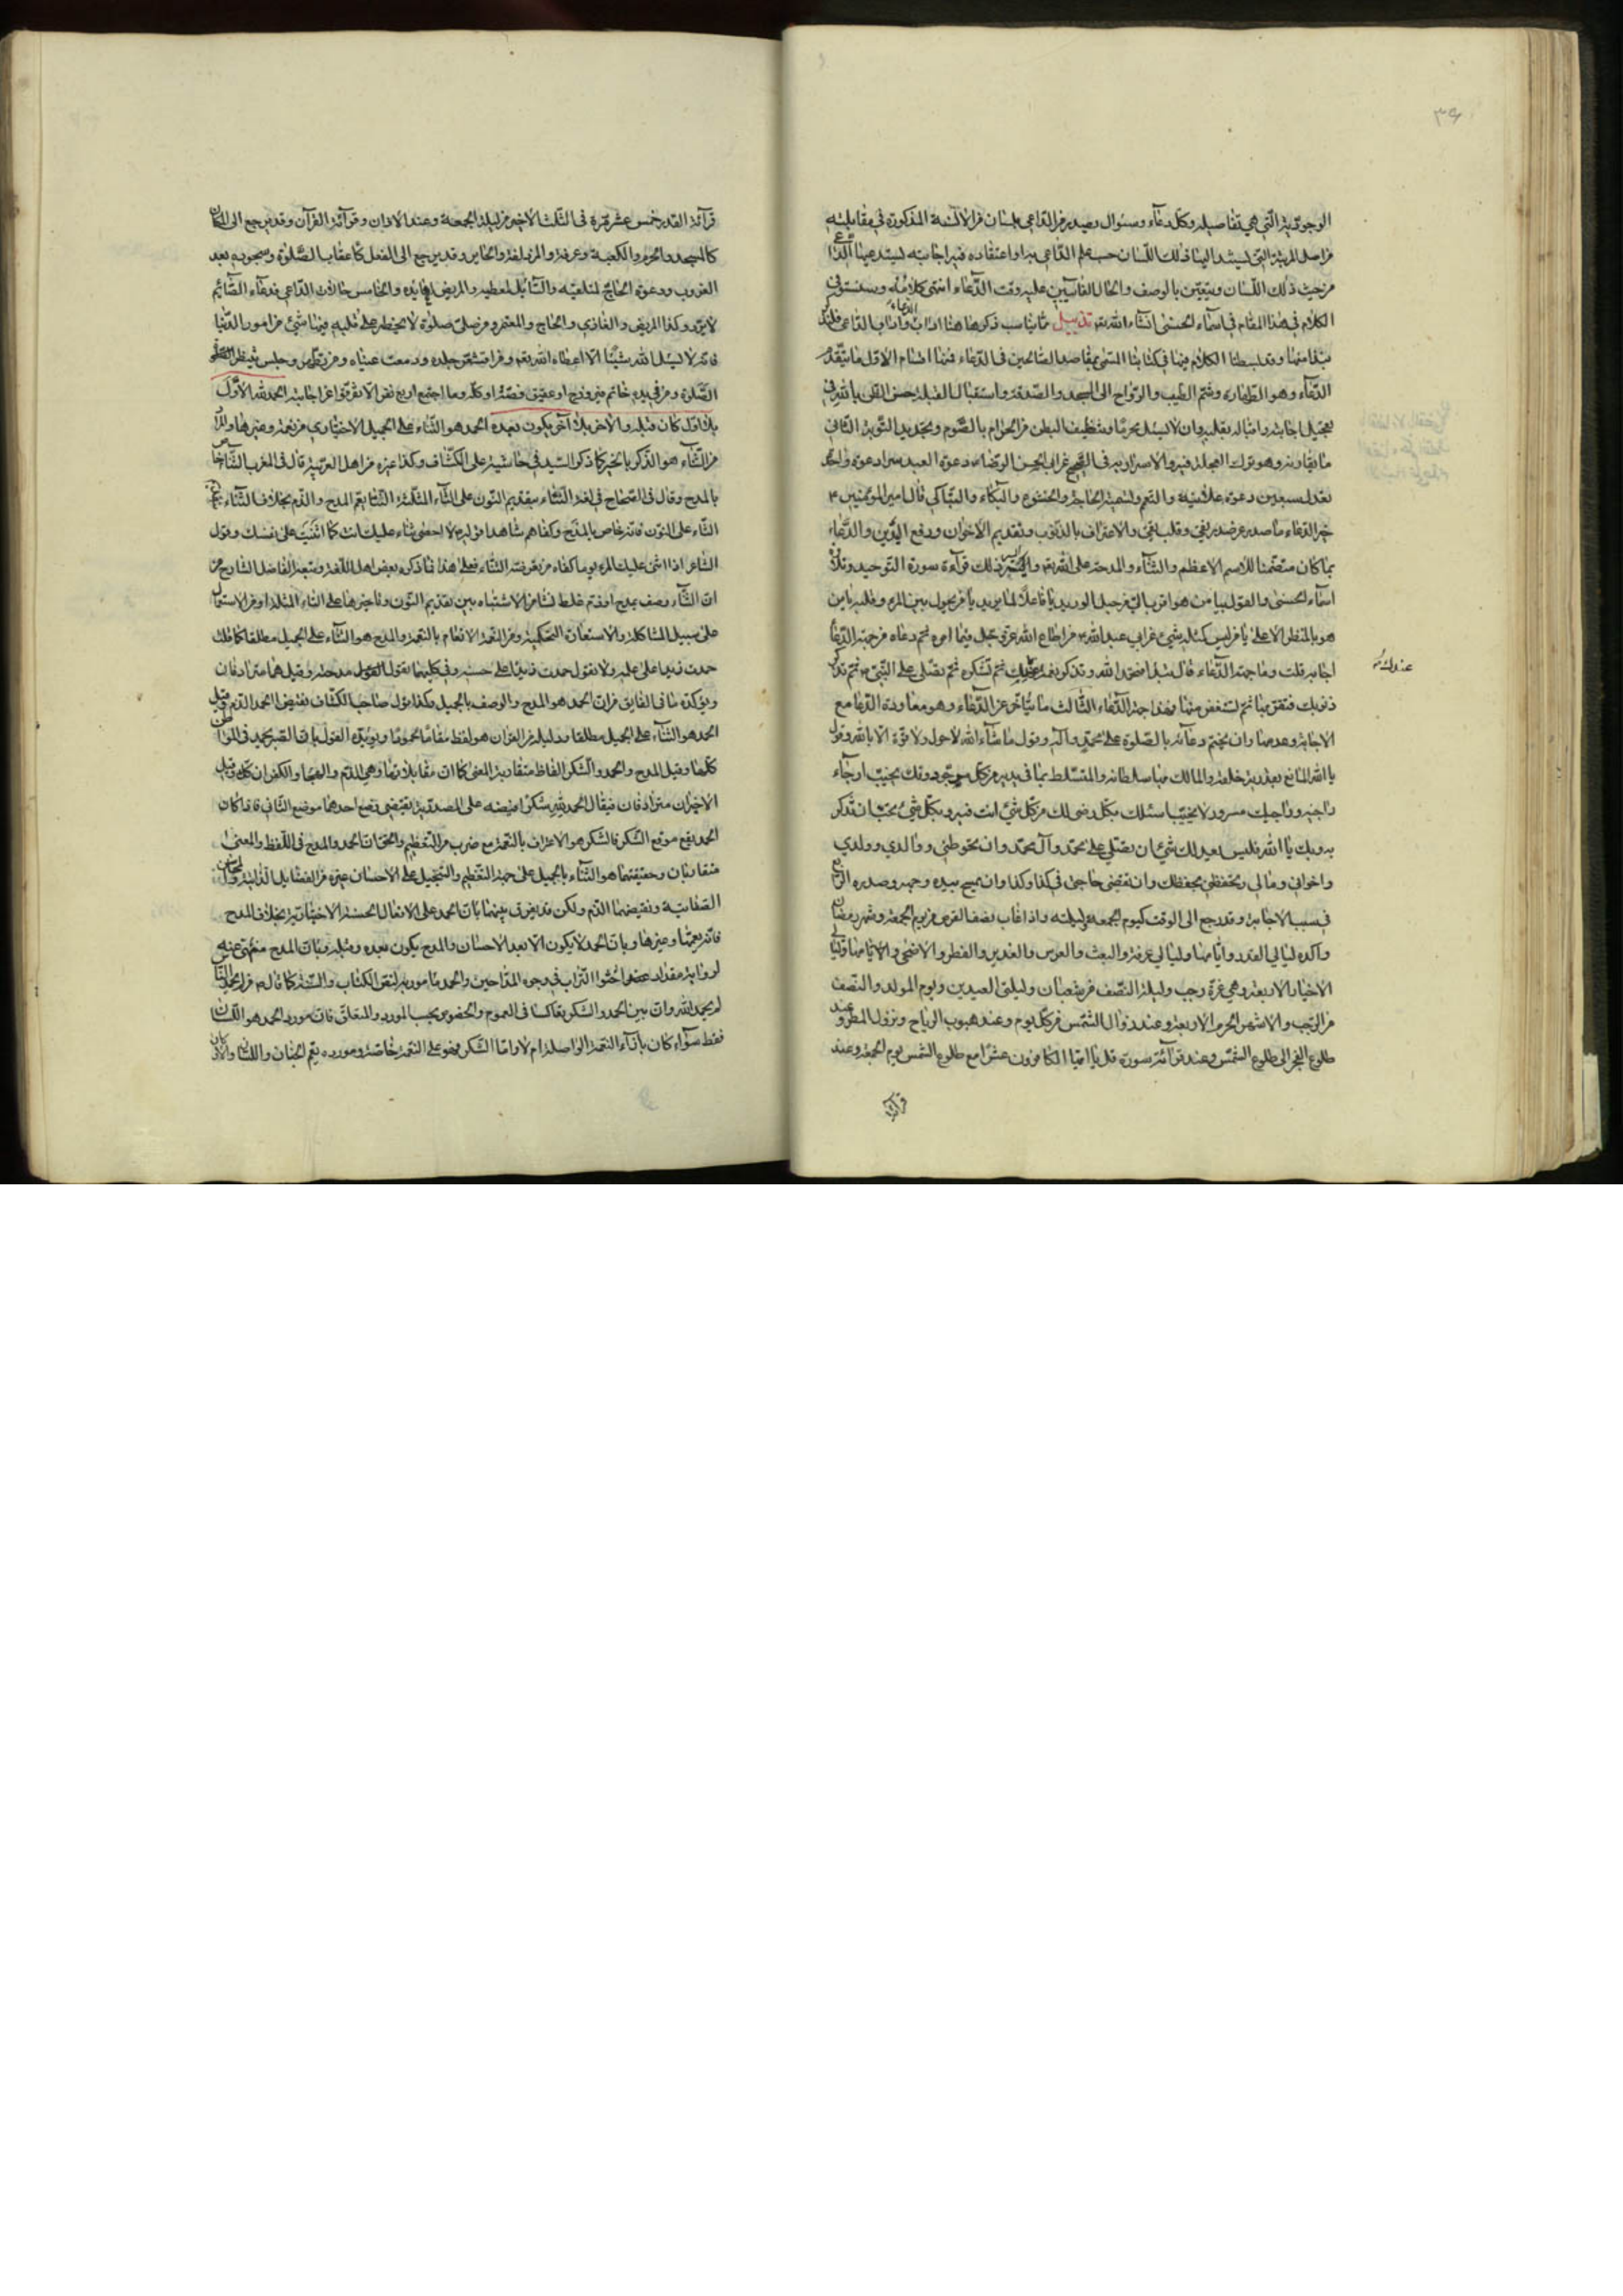 ٣٤
الوجوديّة الّتي هي تفاصيله وكلّ دعآء وسئوال يصدر من الدّاعي بلسان من الالسنة المذكورة في مقابلته
من اصل المرتبة التي يستند اليها ذلك اللّسان حسب علم الدّاعي بها واعتقاده فيه اجابته يستدعيها الدّاعي
من حيث ذلك اللّسان ويتعيّن بالوصف والحال الغالبين عليه وقت الدّعاء انتهى كلامه وسنستوفي
الكلام في هذا المقام في اسمآء الحسنى انشاء الله تعالى تذييل ممّا يناسب ذكرها هنا اداب الدعاء واداب الداعي فلنذكر
نبذا منها وقد بسطنا الكلام فيها في كتابنا المسمّى بمقاصد الصالحين في الدّعاء فنها اقسام الاوّل ما يتقدّم
الدّعآء وهو الطهارة وشمّ الطّيب والرّواح الى المسجد والصّدقة واستقبال القبلة وحسن الظن بالله في
تعجيل اجابته واقباله بقلبه وان لا يسئل محرّما وتنظيف البطن من الحرام بالصّوم وتجديد التّوبة الثّاني
ما يقارنه وهو ترك العجلة فيه والاسرار به ففي الصّحيح عن ابي الحسن الرّضا دعوة العبد سرا دعوة واحدة
تعدل سبعين دعوة علانيّة والتعميم وتسمية الحاجة والخشوع والبكاء والتباكي قال امير المؤمنين ع
خير الدّعاء ما صدر عن صدر نقيّ وقلب تقيّ والاعتراف بالذّنوب وتقديم الاخوان ورفع اليدين والدّعاء
بما كان متضمّنا للاسم الاعظم والثّنآء والمدحة على الله تعالى وايسر ذلك قرآءة سورة التّوحيد وتلاوة
اسمآء الحسنى والقول بيا من هو اقرب اليّ من حبل الوريد يا فاعلا لما يريد يا من يحول بين المرء وقلبه يا من
هو بالمنظر الاعلى يا من ليس كمثله شيئ عن ابي عبد الله ع من اطاع الله عزّ وجل فيما امره ثم دعاه من جهة الدّعاء
اجابه قلت وما جهة الدّعاء قال تبدأ فتحمد الله وتذكر نعمه عندك ثم تشكره ثم تصلّي على النّبي ص ثم تذكر
عندك
ذنوبك فتقرّ بها ثم تستغفر منها فهذا جهة الدّعاء الثّالث ما يتأخّر عن الدّعآء وهو معاودة الدّعا مع
الاجابة وعدمها وان يختم دعآئه بالصّلوة على محمّد وآله وقول ما شآء الله لا حول ولا قوّة الا بالله وقول
يا الله المانع بقدرته خلقه والمالك بها سلطانه والمتسلّط بما في يديه من كل موجود دونك يخيب رجآء
راجيه وراجيك مسرور لا يخيب اسئلك بكلّ رضى لك من كلّ شيئ انت فيه وبكلّ شيئ تحبّ ان تذكر
به وبك يا الله فليس يعدلك شيئ ان تصلّي على محمّد وآل محمّد وان تحوطني ووالدي وولدي
واخواني ومالي وتحفظني بحفظك وان تقضي حاجتي في كذا وكذا وان يمسح بيده وجهه وصدره الرابع
في سبب الاجابة وقد رجع الى الوقت كيوم الجمعة وليلته واذا غاب نصف القرص من يوم الجمعة وشهر رمضان
وآكده ليالي القدر وايّامها وليالي عرفة والبعث والعرس والغدير والفطر والاضحى والايام
الاحيا الاربعة وهي غرّة رجب وليلة النّصف من شعبان وليلتي العيدين ويوم المولد والنّصف
من الرّجب والاشهر الحرم الاربعة وعند زوال الشّمس من كلّ يوم وعند هبوب الرّياح ونزول المطر وعند
طلوع الفجر الى طلوع الشّمس وعند قرآئة سورة قل يا ايّها الكافرون عشرا مع طلوع الشمس يوم الجمعة وعند
قرآئة
قرآئة القدر خمس عشر مرّة في الثّلث الاخير من ليلة الجمعة وعند الاذان وقرآئة القرآن وقد يرجع الى المكان
كالمسجد والحرم والكعبة وعرفة والمزدلفة والحاير وقد يرجع الى الفعل كاعقاب الصّلوة وسجوده بعد
الغروب ودعوة الحاج لمتلقيه والسّائل لمعطيه والمريض لعايده والخامس حالات الدّاعي فدعآء الصّائم
لا يردّ وكذا المريض والغازي والحاج والمعتمر ومن صلّى صلوة لا يخطر على قلبه فيها شيئ من امور الدّنيا
فانّه لا يسئل الله شيئا الا اعطاه الله تعالى ومن اقشعرّ جلده ودمعت عيناه ومن تطهّر وجلس ينتظر الصّلوة
الصّلوة ومن في يده خاتم فيروزج او عقيق فصّه او كلّه وما اجتمع اربع نفر الا تفرّقوا عن اجابة الحمد لله الاوّل
بلا اوّل كان قبله والاخر بلا آخر يكون بعده الحمد هو الثّناء على الجميل الاختياري من نعمة وغيرها والمراد
من الثّناء هو الذّكر بالخير كما ذكر السّيد في حاشيته على الكشّاف وكذا غيره من اهل العربيّة قال في المغرب الثّناء خاص
بالمدح وقال في الصّحاح في لغة النّثاء بتقديم النّون على الثّاء المثلّثة النّثا يعمّ المدح والذّم بخلاف الثّناء
الثّاء على النّون فانّه خاصّ بالمدح وكفاهم شاهدا قوله ص لا احصى ثناء عليك انت كما اثنيت على نفسك وقول
الشّاعر اذا اثنى عليك المرء يوما كفاه من تعرّضه الثّناء فعلى هذا فما ذكره بعض اهل اللّغة وتبعه الفاضل الشارح من
انّ الثّناء وصف بمدح او ذم غلط نشا من الاشتباه بين تقديم النّون وتاخيرها على الثاء المثلثة او من الاستعمال
على سبيل المشاكلة والاستعارة التّهكميّة ومن النّعمة الانعام بالنّعمة والمدح هو الثّناء على الجميل مطلقا كما قلت
حمدت زيدا على علمه ولا تقول حمدت زيدا على حسنه وفي كليهما تقول مدحته وقيل هما مترادفان
ويؤكّده ما في الفايق من انّ الحمد هو المدح والوصف بالجميل وكذا قول صاحب الكشّاف نقيض الحمد الذّم وقيل
الحمد هو الثّناء على الجميل مطلقا ودليله من القران هو لفظ مقاما محمودا ويؤيّده القول بانّ الصّبر يحمد في المواطن
كلّها وقيل المدح والحمد والشّكر الفاظ متقاربة المعنى كما انّ مقابلاتها وهي الذّم والهجا والكفران كك وقيل
الاخيران مترادفان فيقال الحمد لله شكرا فنصبه على المصدريّة يقتضي وضع احدهما موضع الثّاني فاذا كان
الحمد يقع موقع الشّكر فالشّكر هو الاعتراف بالنّعمة مع ضرب من التّعظيم والحق انّ الحمد والمدح في اللّفظ والمعنى
متقاربان وحقيقتهما هو الثّناء بالجميل على جهة التّعظيم والتّبجيل على الاحسان وغيره من الفضايل
الصّفاتيّة ونقيضهما الذّم ولكن قد يفرق بينهما بانّ الحمد على الافعال الحسنة الاختياريّة بخلاف المدح
فانّه يعمّها وغيرها وبانّ الحمد لا يكون الّا بعد الاحسان والمدح يكون بعده وقبله وبانّ المدح منهي عنه
لرواية مقداد احثوا التّراب في وجوه المدّاحين والحمد مامور به لنصّ الكتاب والسّنّة كما قال ص من لم يحمد النّاس
لم يحمد الله وانّ بين الحمد والشّكر تعاكسا في العموم والخصوص بحسب المورد والمتعلّق فانّ مورد الحمد هو اللّسان
فقط سوآء كان بازآء النّعمة الواصلة ام لا وامّا الشّكر فهو على النّعمة خاصّة ومورده يعمّ الجنان واللّسان والاركان